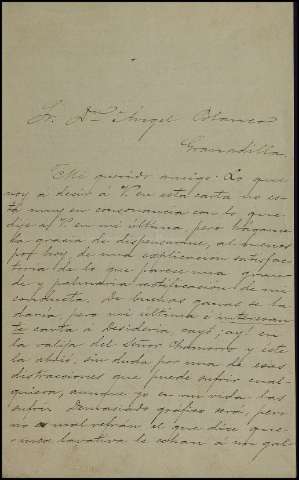 Sr. Dn. Angel Blanco
Granadilla.
Mi querido amigo: Lo que
voy a desir á V. en esta carta no es-
tá muy en consonancia con lo que
dije a V. en mi última pero hágame
la gracia de dispensarme, al menos
por hoy, de una esplicacion satisfac-
toria de lo que parece una gran-
de y palmaria rectificacion de mi
conducta. De buenas ganas se la
daria, pero mi última é interesan-
te carta á Desideria, cayó ¡ay! en
la valija del Señor Chamorro y éste
la abrió, sin duda por una de esas
distracciones que puede sufrir cual-
quiera, aunque yo en mi vida las
sufrí. Demasiado gráfico será, pero
no es mal refrán el que dice que
lavativa le echan á un gal-